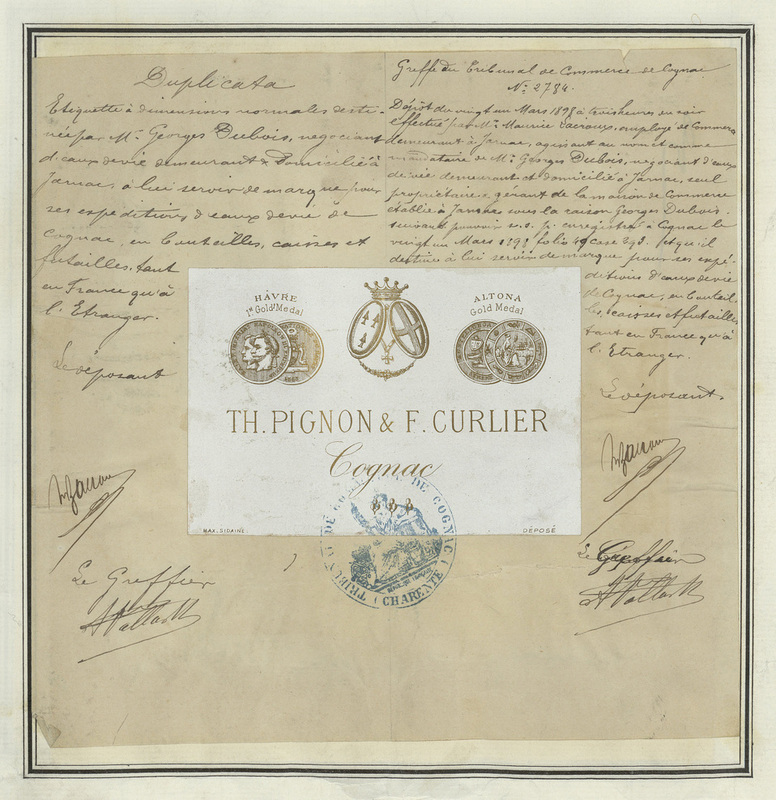 Duplicata
Etiquette à dimensions normales desti-
née par Mr. Georges Dubois, négociant
d'eaux de vie demeurant & domicilié à
Jarnac, à lui servir de marque pour
ses expéditions d'eaux de vie de
Cognac, en bouteilles, caisses et
futailles, tant
en France qu'à
l'Etranger.
Le déposant
Le Greffier
Greffe du Tribunal de Commerce de Cognac
No. 2784.
Dépôt du vingt un Mars 1898 à trois heures du soir
effectué par Mr. Maurice Lacroux, employé de Commerce
demeurant à Jarnac, agissant au nom et comme
mandataire de Mr. Georges Dubois, négociant d'eaux
de vie demeurant et domicilié à Jarnac, seul
propriétaire & gérant de la maison de Commerce
établie à Jarnac sous la raison Georges Dubois.
suivant pouvoir s. s. p. enregistré à Cognac le
vingt un Mars 1898 folio 49 case 293. Lequel
destine à lui servir de marque pour ses expé-
ditions d'eaux de vie
de Cognac, en bouteil-
les, caisses et futailles
tant en France qu'à
l'Etranger.
Le déposant.
Le Greffier
HÂVRE
1er Gold Medal
ALTONA
Gold Medal
TH. PIGNON & F. CURLIER
Cognac
MAX. SIDAINE
DÉPOSÉ
TRIBUNAL DE COMMERCE DE COGNAC
(CHARENTE)